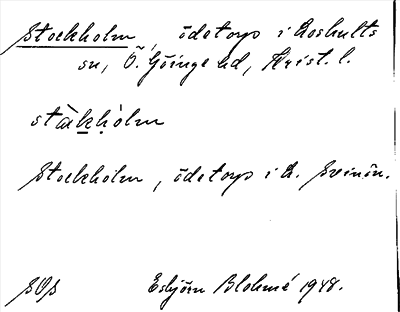 Stockholm, ödetorp i Loshults
sn, Ö. Göinge hd, Krist. l.
stàkhólm
Stockholm, ödetorp i L. Svinön.
SOS Esbjörn Blohmé 1948.